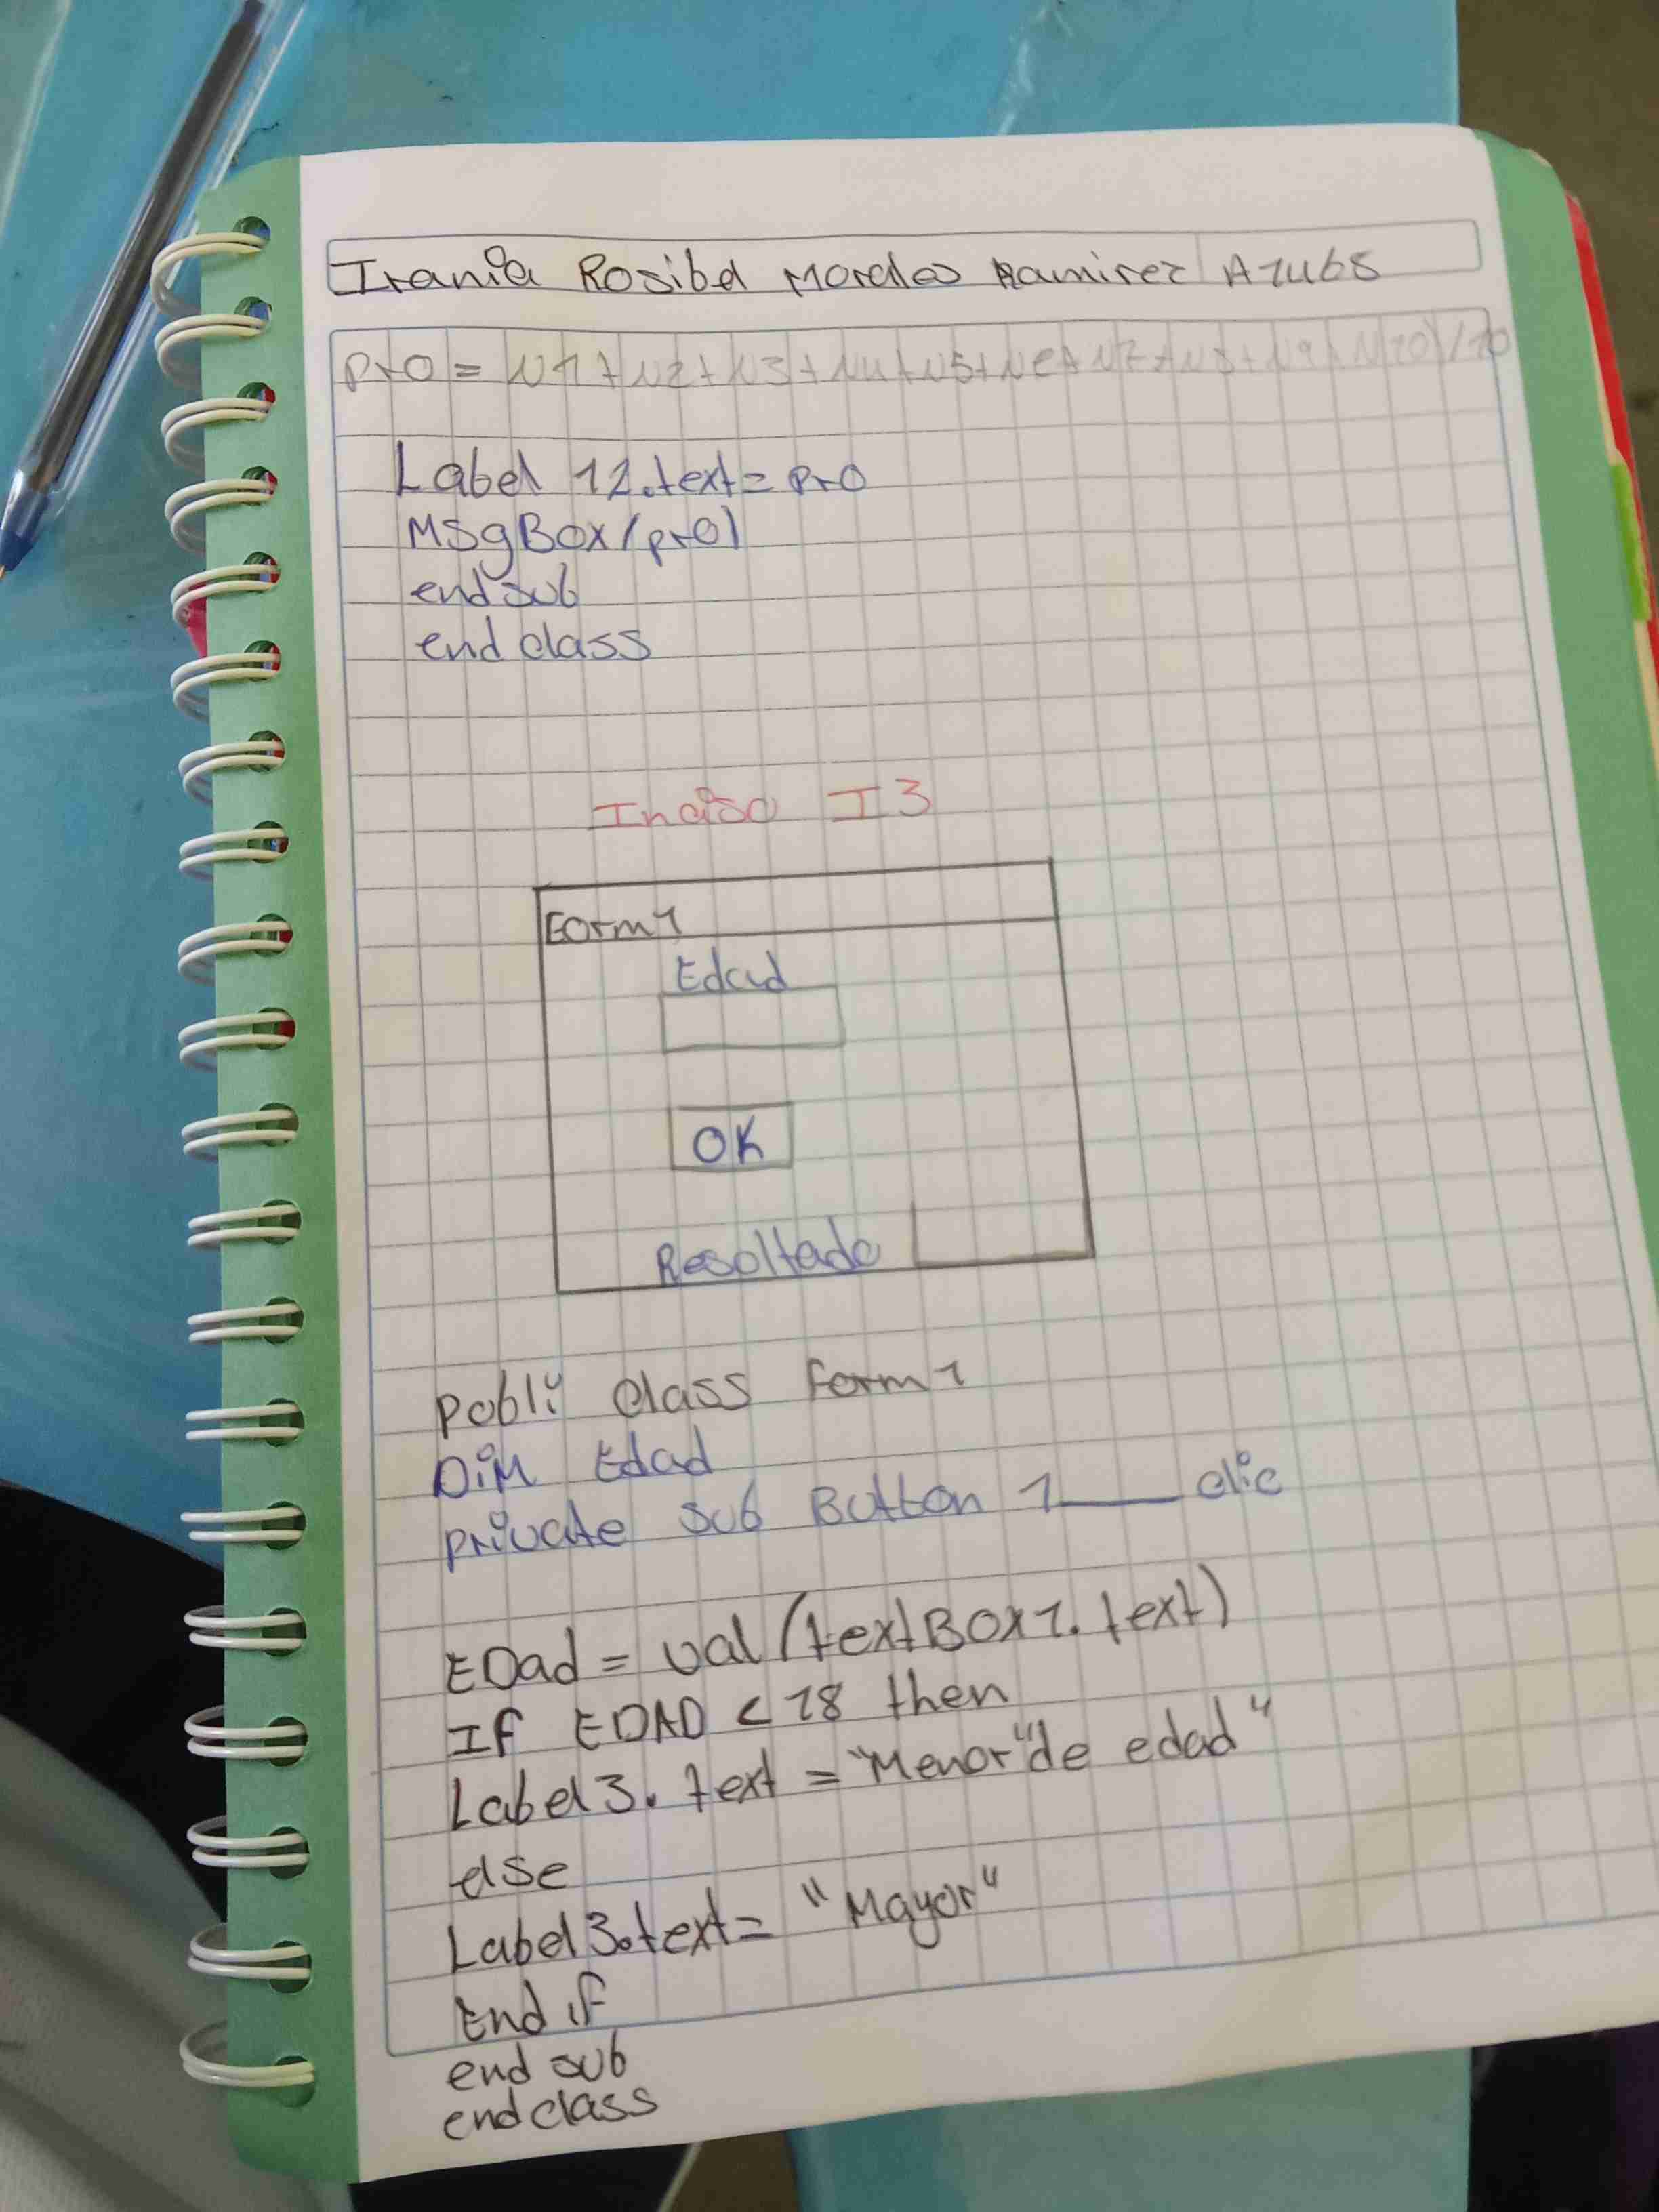 Irania Rosibel Morales Ramirez A7465
Pro = N1+N2+N3+N4+N5+N6+N7+N8+N9+N10)/10
Label 12.text= pro
MSgBox(pro)
end sub
end class
Inciso I3
Form1
Edad
OK
Resoltado
Publi class form1
DiM Edad
private sub Button 1____ clic
EDad = val(textBox1.text)
If EDAD < 18 then
Label3. text = "Menor"de edad"
else
Label3.text= "Mayor"
End if
end sub
end class